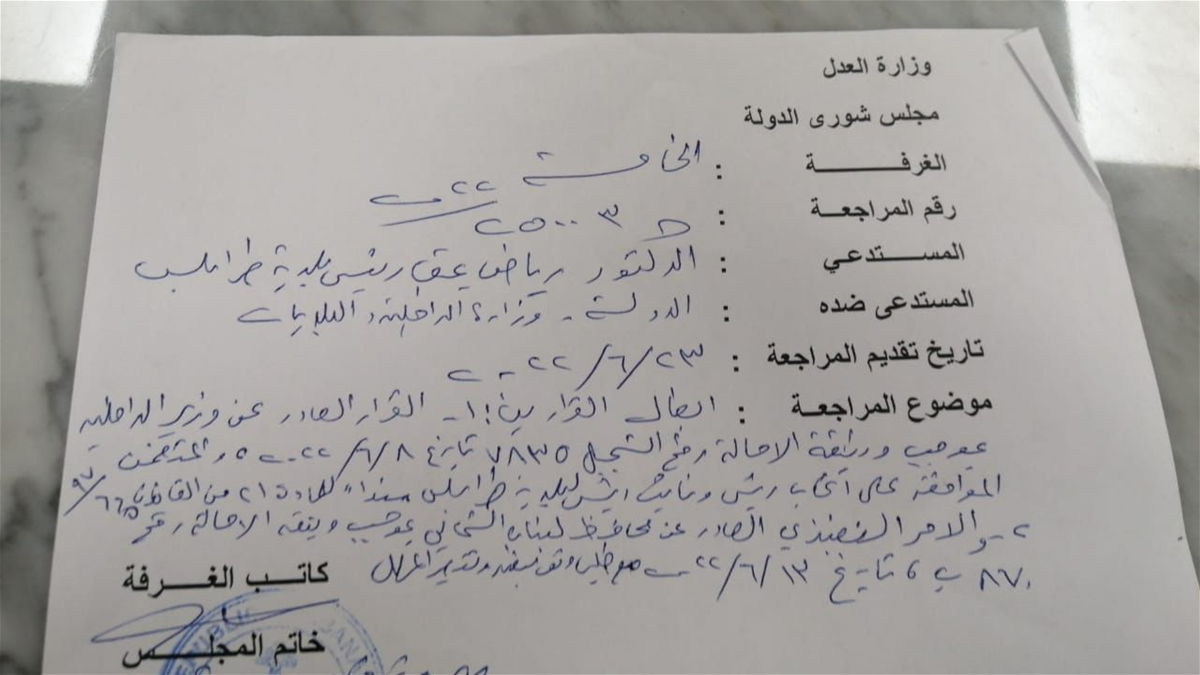 وزارة العدل
مجلس شورى الدولة
الغرفة : الخامسة
رقم المراجعة : ٢٥٠٠٣ / ٢٠٢٢
المستدعي : الدكتور رياض يمق رئيس بلدية طرابلس
المستدعى ضده : الدولة - وزارة الداخلية والبلديات
تاريخ تقديم المراجعة : ٢٣/٦/٢٠٢٢
موضوع المراجعة : ابطال القرارين: ١- القرار الصادر عن وزير الداخلية
بموجب وثيقة الاحالة رقم السجل ٧٨٣٥ تاريخ ٨/٦/٢٠٢٢ والمتضمن
الموافقة على انتخاب رئيس ونائب رئيس لبلدية طرابلس سنداً للمادة ٢١ من القانون ٦٦٥/٩٧
٢- والامر التنفيذي الصادر عن محافظ لبنان الشمالي بموجب وثيقة الاحالة رقم
٨٧٠/ب تاريخ ١٣/٦/٢٠٢٢ مع طلب وقف تنفيذ وتقصير المهل
كاتب الغرفة
خاتم المجلس